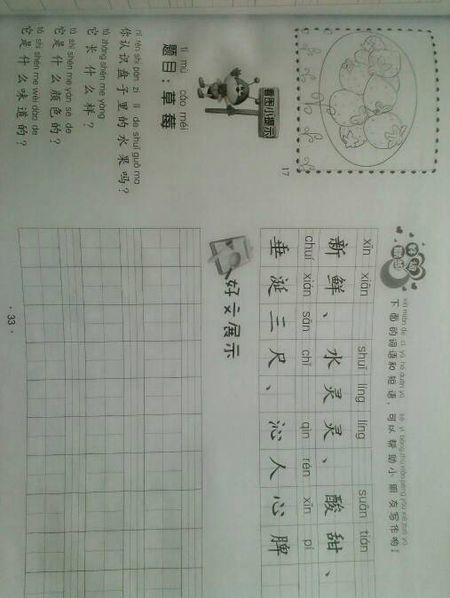 17
看图小提示
tí mù cǎo méi
题目：草莓
nǐ rèn shi pán zi lǐ de shuǐ guǒ ma
你认识盘子里的水果吗？
tā zhǎng shén me yàng
它长什么样？
tā shì shén me yán sè de
它是什么颜色的？
tā shì shén me wèi dào de
它是什么味道的？
xià miàn de cí yǔ hé duǎn yǔ kě yǐ bāng zhù xiǎo péng yǒu xiě zuò yo
下面的词语和短语，可以帮助小朋友写作哟！
xīn xiān shuǐ líng líng suān tián
新鲜、水灵灵、酸甜、
chuí xián sān chǐ qìn rén xīn pí
垂涎三尺、沁人心脾
好文展示
· 33 ·